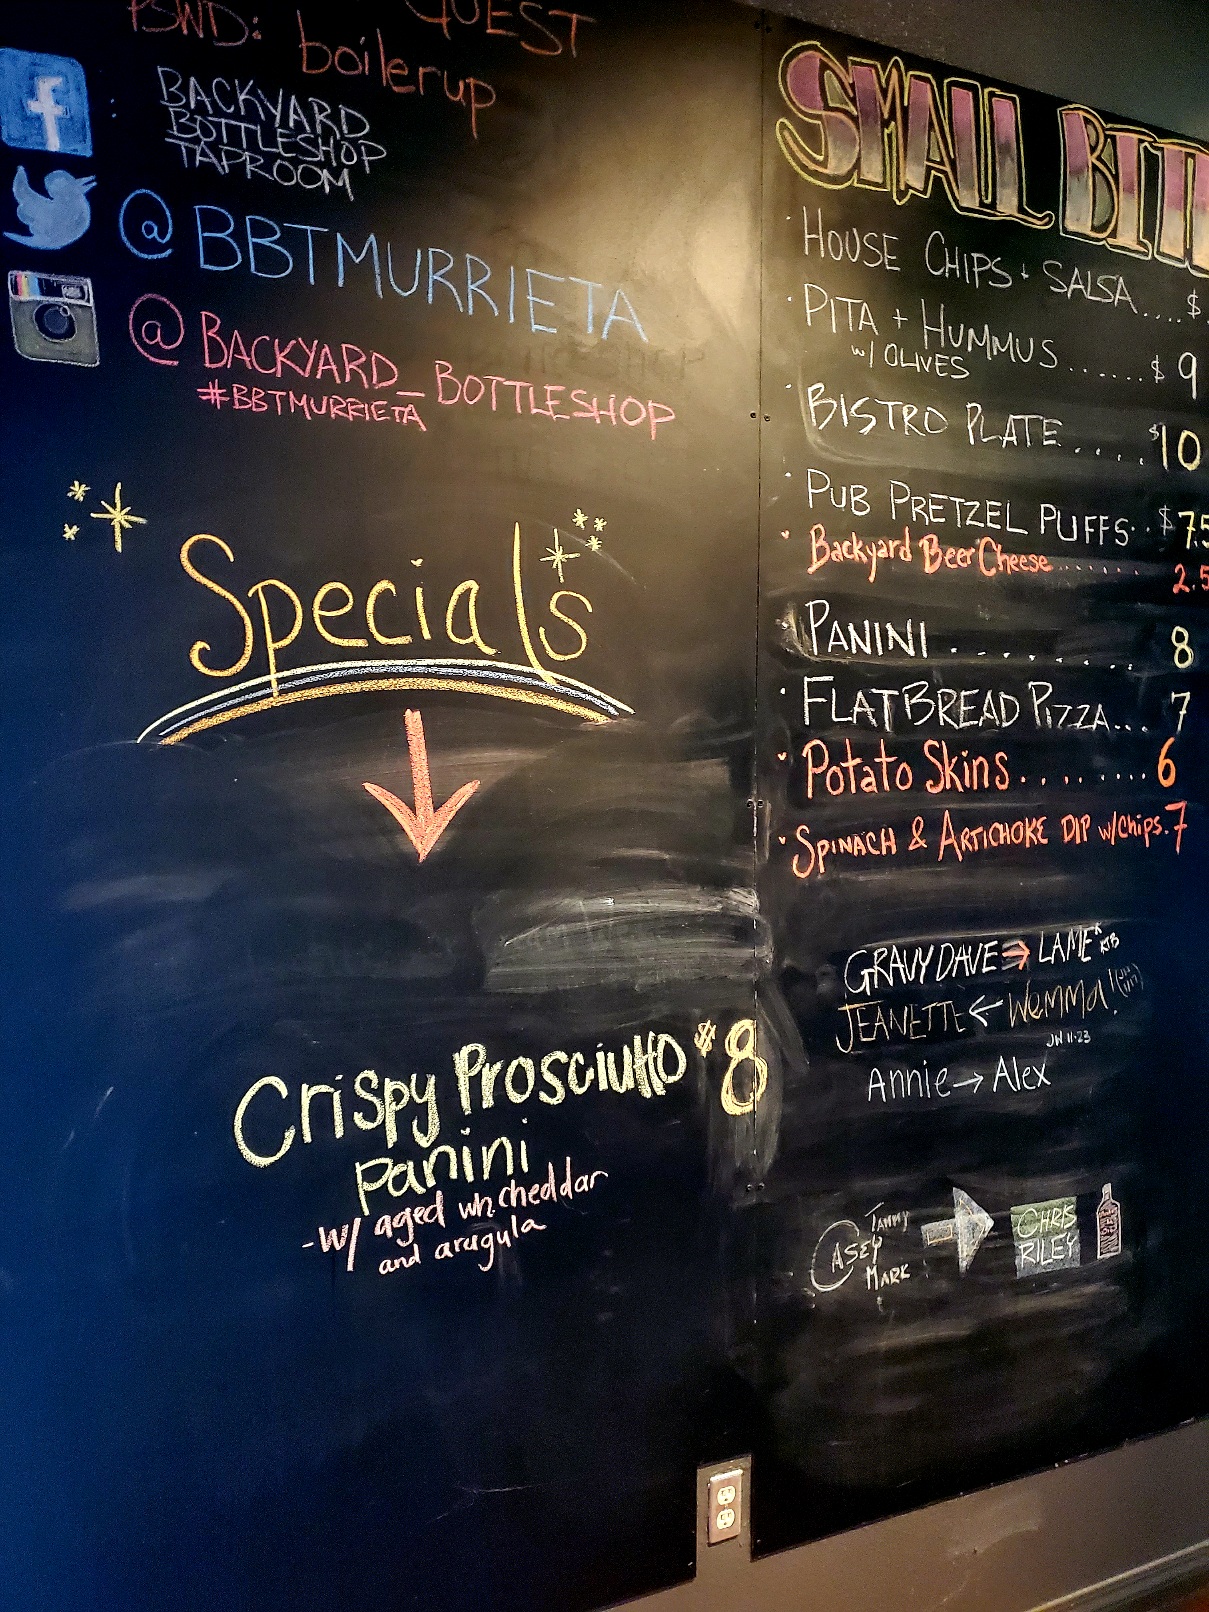 PSWD: GUEST
boilerup
BACKYARD
BOTTLESHOP
TAPROOM
@BBTMURRIETA
@BACKYARD_BOTTLESHOP
#BBTMURRIETA
Specials
Crispy Prosciutto $8
panini
-w/ aged wh. cheddar
and arugula
SMALL
HOUSE CHIPS + SALSA.... $
PITA + HUMMUS....... $9
w/ OLIVES
BISTRO PLATE..... $10
PUB PRETZEL PUFFS.. $7.5
Backyard Beer Cheese....... 2.5
PANINI.......... 8
FLATBREAD PIZZA... 7
Potato Skins......... 6
SPINACH & ARTICHOKE DIP w/Chips. 7
GRAVY DAVE → LAME*
JEANETTE ← WEMMA!
JW 11-23
Annie → Alex
TAMMY
CASEY
MARK
CHRIS
RILEY